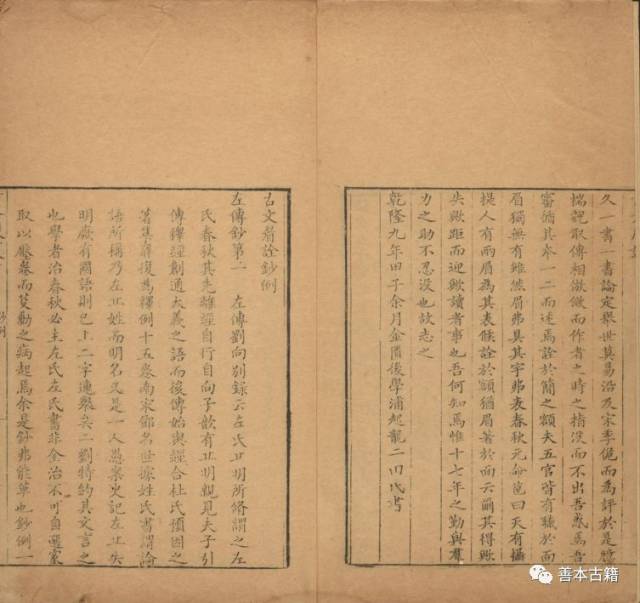 久一書一書論定舉世莫易沿及宋季俛而為評於是
取傳相倣而作者之時之情沒而不出吾焉吾
審循其本一二而述焉詮於簡之額夫五官皆有職於面
眉獨無有雖然眉弗具其宇弗表春秋元命苞曰天有攝
提人有兩眉為其表候詮於額猶眉著於面云爾其得歟
失歟距而迎歟讀者事也吾何知焉惟十七年之勤與羣
力之助不忍沒也故志之
乾隆九年甲子余月金匱後學浦起龍二田氏書
古文眉詮鈔例
左傳鈔第二　左傳劉向別錄云左氏丘明所脩謂之左
氏春秋其先離經自行自向子歆有丘明親見夫子引
傳釋經創通大義之語而後傳始與經合杜氏預因之
集復為釋例十五卷南宋鄧名世據姓氏書謂論
語所稱乃左丘姓而明名又是一人愚案史記左丘失
明厥有國語則已上二字連舉矣二劉特約其文言之
也學者治春秋必主左氏左氏書非全治不可自選家
取以纂而之病起焉余是鈔弗能革也鈔例一
善本古籍